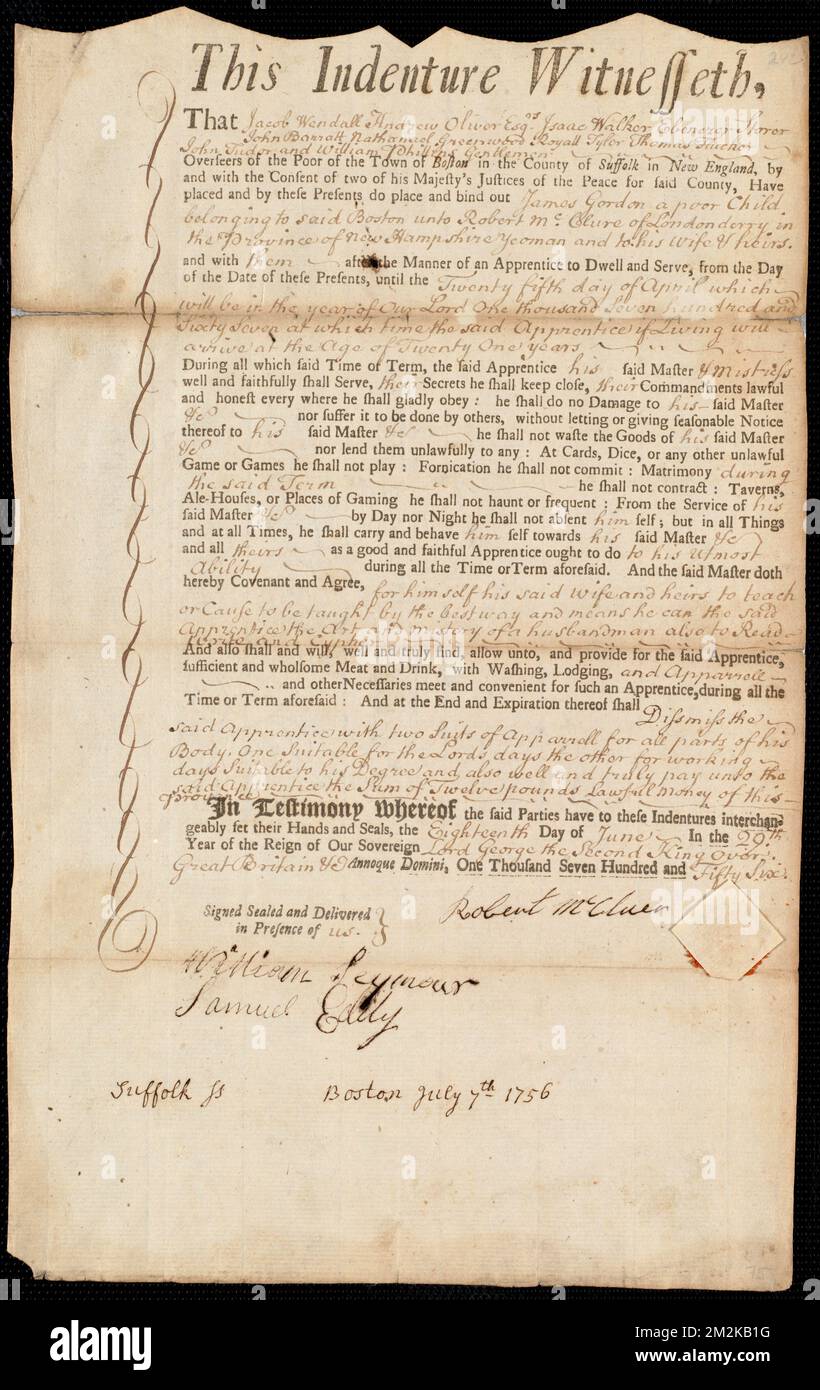 This Indenture Witnesseth,
That Jacob Wendall Andrew Oliver Esqrs Isaac Walker Ebenezer Storer
John Barratt Nathaniel Greenwood Royall Tyler Thomas
John Tudor and William Phillips Gentlemen
Overseers of the Poor of the Town of Boston in the County of Suffolk in New England, by
and with the Consent of two of his Majesty's Justices of the Peace for said County, Have
placed and by these Presents do place and bind out James Gordon a poor Child
belonging to said Boston unto Robert Mc Clure of Londonderry in
the Province of New Hampshire Yeoman and to his Wife & heirs.
and with them after the Manner of an Apprentice to Dwell and Serve, from the Day
of the Date of these Presents, until the Twenty fifth day of April which
will be in the year of Our Lord One thousand Seven hundred and
Sixty Seven at which time the said Apprentice if Living will
arrive at the Age of Twenty One years
During all which said Time or Term, the said Apprentice his said Master & Mistress
well and faithfully shall Serve, their Secrets he shall keep close, their Commandments lawful
and honest every where he shall gladly obey : he shall do no Damage to his said Master
&c nor suffer it to be done by others, without letting or giving seasonable Notice
thereof to his said Master &c he shall not waste the Goods of his said Master
&c nor lend them unlawfully to any : At Cards, Dice, or any other unlawful
Game or Games he shall not play : Fornication he shall not commit : Matrimony during
the said Term he shall not contract : Taverns,
Ale-Houses, or Places of Gaming he shall not haunt or frequent : From the Service of his
said Master &c by Day nor Night he shall not absent him self ; but in all Things
and at all Times, he shall carry and behave him self towards his said Master &c
and all theirs as a good and faithful Apprentice ought to do to his Utmost
Ability during all the Time or Term aforesaid. And the said Master doth
hereby Covenant and Agree, for himself his said Wife and heirs to teach
or Cause to be taught by the best way and means he can the said
Apprentice the Art and mistery of a husbandman also to Read
Write and Cypher
And also shall and will, well and truly find, allow unto, and provide for the said Apprentice,
sufficient and wholsome Meat and Drink, with Washing, Lodging, and Apparrell
and other Necessaries meet and convenient for such an Apprentice, during all the
Time or Term aforesaid : And at the End and Expiration thereof shall Dissmiss the
said Apprentice with two Suits of Apparrell for all parts of his
Body, One Suitable for the Lords days the other for working
days Suitable to his Degree and also well and truly pay unto the
said Apprentice the Sum of Twelve pounds Lawfull money of this
Province
In Testimony whereof the said Parties have to these Indentures interchan-
geably set their Hands and Seals, the Eighteenth Day of June In the 29th
Year of the Reign of Our Sovereign Lord George the Second King Over
Great Britain &c Annoque Domini, One Thousand Seven Hundred and Fifty Six.
Signed Sealed and Delivered
in Presence of us.
Robert McCluer
William Seymour
Samuel Eddy
Suffolk ss Boston July 7th 1756
alamy
Image ID: 2M2KB1G
www.alamy.com